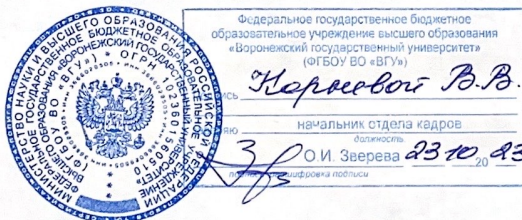 МИНИСТЕРСТВО НАУКИ И ВЫСШЕГО ОБРАЗОВАНИЯ РОССИЙСКОЙ ФЕДЕРАЦИИ
ФЕДЕРАЛЬНОЕ ГОСУДАРСТВЕННОЕ БЮДЖЕТНОЕ ОБРАЗОВАТЕЛЬНОЕ УЧРЕЖДЕНИЕ
ВЫСШЕГО ОБРАЗОВАНИЯ «ВОРОНЕЖСКИЙ ГОСУДАРСТВЕННЫЙ УНИВЕРСИТЕТ»
(ФГБОУ ВО «ВГУ»)
Федеральное государственное бюджетное
образовательное учреждение высшего образования
«Воронежский государственный университет»
(ФГБОУ ВО «ВГУ»)
ись Корневой В.В.
яю начальник отдела кадров
должность
О.И. Зверева 23.10.20 23
подпись, расшифровка подписи